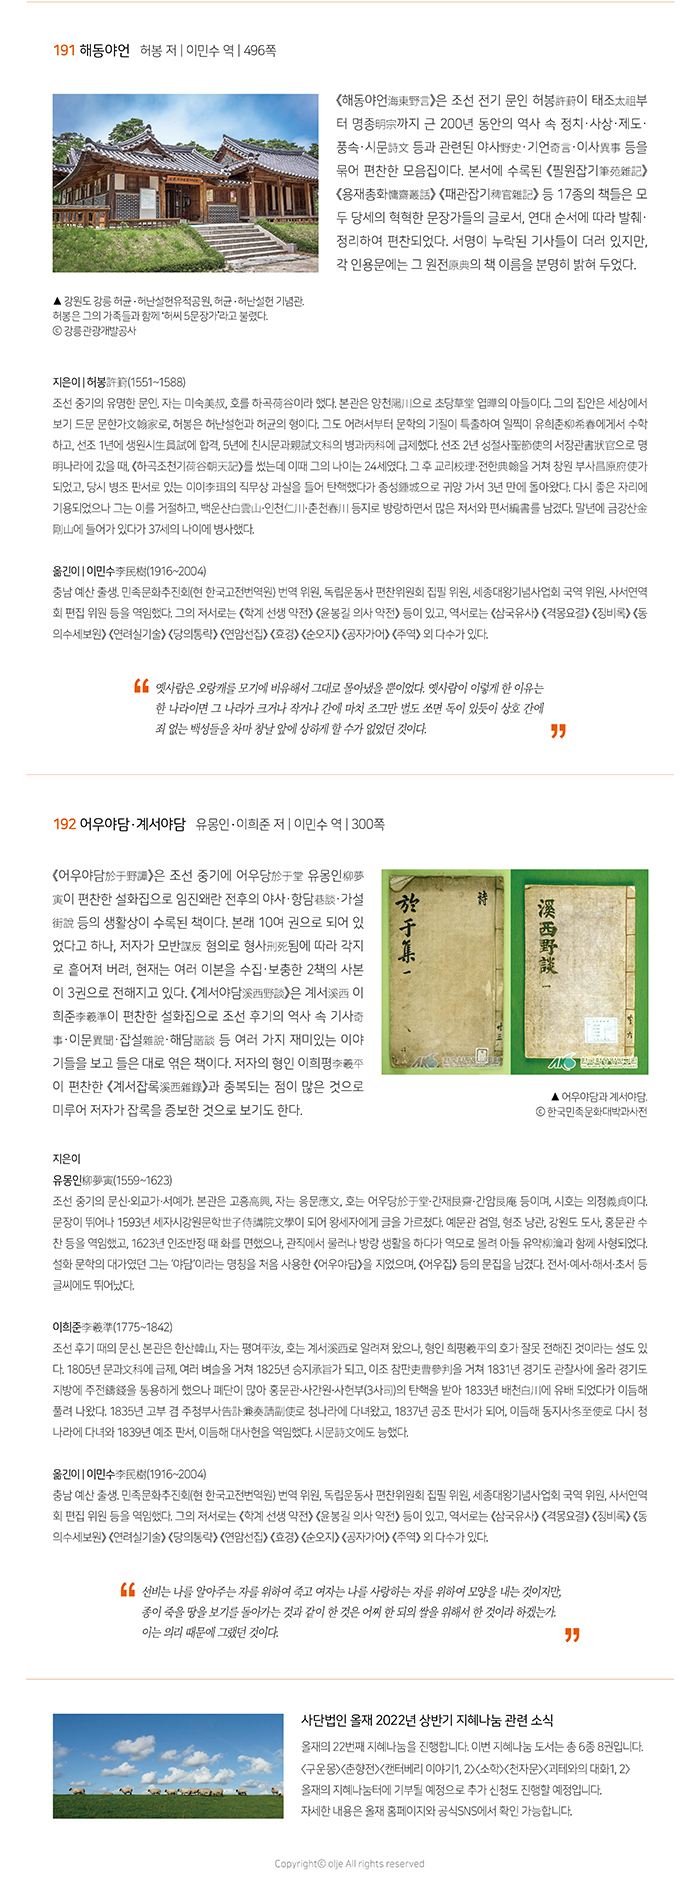 191 해동야언 허봉 저 | 이민수 역 | 496쪽
《해동야언海東野言》은 조선 전기 문인 허봉許篈이 태조太祖부
터 명종明宗까지 근 200년 동안의 역사 속 정치·사상·제도·
풍속·시문詩文 등과 관련된 야사野史·기언奇言·이사異事 등을
묶어 편찬한 모음집이다. 본서에 수록된 《필원잡기筆苑雜記》
《용재총화慵齋叢話》 《패관잡기稗官雜記》 등 17종의 책들은 모
두 당세의 혁혁한 문장가들의 글로서, 연대 순서에 따라 발췌·
정리하여 편찬되었다. 서명이 누락된 기사들이 더러 있지만,
각 인용문에는 그 원전原典의 책 이름을 분명히 밝혀 두었다.
▲ 강원도 강릉 허균·허난설헌유적공원, 허균·허난설헌 기념관.
허봉은 그의 가족들과 함께 '허씨 5문장가'라고 불렸다.
ⓒ 강릉관광개발공사
지은이 | 허봉許篈(1551~1588)
조선 중기의 유명한 문인. 자는 미숙美叔, 호를 하곡荷谷이라 했다. 본관은 양천陽川으로 초당草堂 엽曄의 아들이다. 그의 집안은 세상에서
보기 드문 문한가文翰家로, 허봉은 허난설헌과 허균의 형이다. 그도 어려서부터 문학의 기질이 특출하여 일찍이 유희춘柳希春에게서 수학
하고, 선조 1년에 생원시生員試에 합격, 5년에 친시문과親試文科의 병과丙科에 급제했다. 선조 2년 성절사聖節使의 서장관書狀官으로 명
明나라에 갔을 때, 《하곡조천기荷谷朝天記》를 썼는데 이때 그의 나이는 24세였다. 그 후 교리校理·전한典翰을 거쳐 창원 부사昌原府使가
되었고, 당시 병조 판서로 있는 이이李珥의 직무상 과실을 들어 탄핵했다가 종성鍾城으로 귀양 가서 3년 만에 돌아왔다. 다시 좋은 자리에
기용되었으나 그는 이를 거절하고, 백운산白雲山·인천仁川·춘천春川 등지로 방랑하면서 많은 저서와 편서編書를 남겼다. 말년에 금강산金
剛山에 들어가 있다가 37세의 나이에 병사했다.
옮긴이 | 이민수李民樹(1916~2004)
충남 예산 출생. 민족문화추진회(현 한국고전번역원) 번역 위원, 독립운동사 편찬위원회 집필 위원, 세종대왕기념사업회 국역 위원, 사서연역
회 편집 위원 등을 역임했다. 그의 저서로는 《학계 선생 약전》 《윤봉길 의사 약전》 등이 있고, 역서로는 《삼국유사》 《격몽요결》 《징비록》 《동
의수세보원》 《연려실기술》 《당의통략》 《연암선집》 《효경》 《순오지》 《공자가어》 《주역》 외 다수가 있다.
“ 옛사람은 오랑캐를 모기에 비유해서 그대로 몰아냈을 뿐이었다. 옛사람이 이렇게 한 이유는
한 나라이면 그 나라가 크거나 작거나 간에 마치 조그만 벌도 쏘면 독이 있듯이 상호 간에
죄 없는 백성들을 차마 창날 앞에 상하게 할 수가 없었던 것이다. ”
192 어우야담·계서야담 유몽인·이희준 저 | 이민수 역 | 300쪽
《어우야담於于野譚》은 조선 중기에 어우당於于堂 유몽인柳夢
寅이 편찬한 설화집으로 임진왜란 전후의 야사·항담巷談·가설
街說 등의 생활상이 수록된 책이다. 본래 10여 권으로 되어 있
었다고 하나, 저자가 모반謀反 혐의로 형사刑死됨에 따라 각지
로 흩어져 버려, 현재는 여러 이본을 수집·보충한 2책의 사본
이 3권으로 전해지고 있다. 《계서야담溪西野談》은 계서溪西 이
희준李羲準이 편찬한 설화집으로 조선 후기의 역사 속 기사奇
事·이문異聞·잡설雜說·해담諧談 등 여러 가지 재미있는 이야
기들을 보고 들은 대로 엮은 책이다. 저자의 형인 이희평李羲平
이 편찬한 《계서잡록溪西雜錄》과 중복되는 점이 많은 것으로
미루어 저자가 잡록을 증보한 것으로 보기도 한다.
詩
於于集 一
溪西野談 一
▲ 어우야담과 계서야담.
ⓒ 한국민족문화대백과사전
지은이
유몽인柳夢寅(1559~1623)
조선 중기의 문신·외교가·서예가. 본관은 고흥高興, 자는 응문應文, 호는 어우당於于堂·간재艮齋·간암艮庵 등이며, 시호는 의정義貞이다.
문장이 뛰어나 1593년 세자시강원문학世子侍講院文學이 되어 왕세자에게 글을 가르쳤다. 예문관 검열, 형조 낭관, 강원도 도사, 홍문관 수
찬 등을 역임했고, 1623년 인조반정 때 화를 면했으나, 관직에서 물러나 방랑 생활을 하다가 역모로 몰려 아들 유약柳瀹과 함께 사형되었다.
설화 문학의 대가였던 그는 '야담'이라는 명칭을 처음 사용한 《어우야담》을 지었으며, 《어우집》 등의 문집을 남겼다. 전서·예서·해서·초서 등
글씨에도 뛰어났다.
이희준李羲準(1775~1842)
조선 후기 때의 문신. 본관은 한산韓山, 자는 평여平汝, 호는 계서溪西로 알려져 왔으나, 형인 희평羲平의 호가 잘못 전해진 것이라는 설도 있
다. 1805년 문과文科에 급제, 여러 벼슬을 거쳐 1825년 승지承旨가 되고, 이조 참판吏曹參判을 거쳐 1831년 경기도 관찰사에 올라 경기도
지방에 주전鑄錢을 통용하게 했으나 폐단이 많아 홍문관·사간원·사헌부(3사司)의 탄핵을 받아 1833년 배천白川에 유배 되었다가 이듬해
풀려 나왔다. 1835년 고부 겸 주청부사告訃兼奏請副使로 청나라에 다녀왔고, 1837년 공조 판서가 되어, 이듬해 동지사冬至使로 다시 청
나라에 다녀와 1839년 예조 판서, 이듬해 대사헌을 역임했다. 시문詩文에도 능했다.
옮긴이 | 이민수李民樹(1916~2004)
충남 예산 출생. 민족문화추진회(현 한국고전번역원) 번역 위원, 독립운동사 편찬위원회 집필 위원, 세종대왕기념사업회 국역 위원, 사서연역
회 편집 위원 등을 역임했다. 그의 저서로는 《학계 선생 약전》 《윤봉길 의사 약전》 등이 있고, 역서로는 《삼국유사》 《격몽요결》 《징비록》 《동
의수세보원》 《연려실기술》 《당의통략》 《연암선집》 《효경》 《순오지》 《공자가어》 《주역》 외 다수가 있다.
“ 선비는 나를 알아주는 자를 위하여 죽고 여자는 나를 사랑하는 자를 위하여 모양을 내는 것이지만,
종이 죽을 땅을 보기를 돌아가는 것과 같이 한 것은 어찌 한 되의 쌀을 위해서 한 것이라 하겠는가.
이는 의리 때문에 그랬던 것이다. ”
사단법인 올재 2022년 상반기 지혜나눔 관련 소식
올재의 22번째 지혜나눔을 진행합니다. 이번 지혜나눔 도서는 총 6종 8권입니다.
<구운몽><춘향전><캔터베리 이야기1, 2><소학><천자문><괴테와의 대화1, 2>
올재의 지혜나눔터에 기부될 예정으로 추가 신청도 진행할 예정입니다.
자세한 내용은 올재 홈페이지와 공식SNS에서 확인 가능합니다.
Copyrightⓒ olje All rights reserved